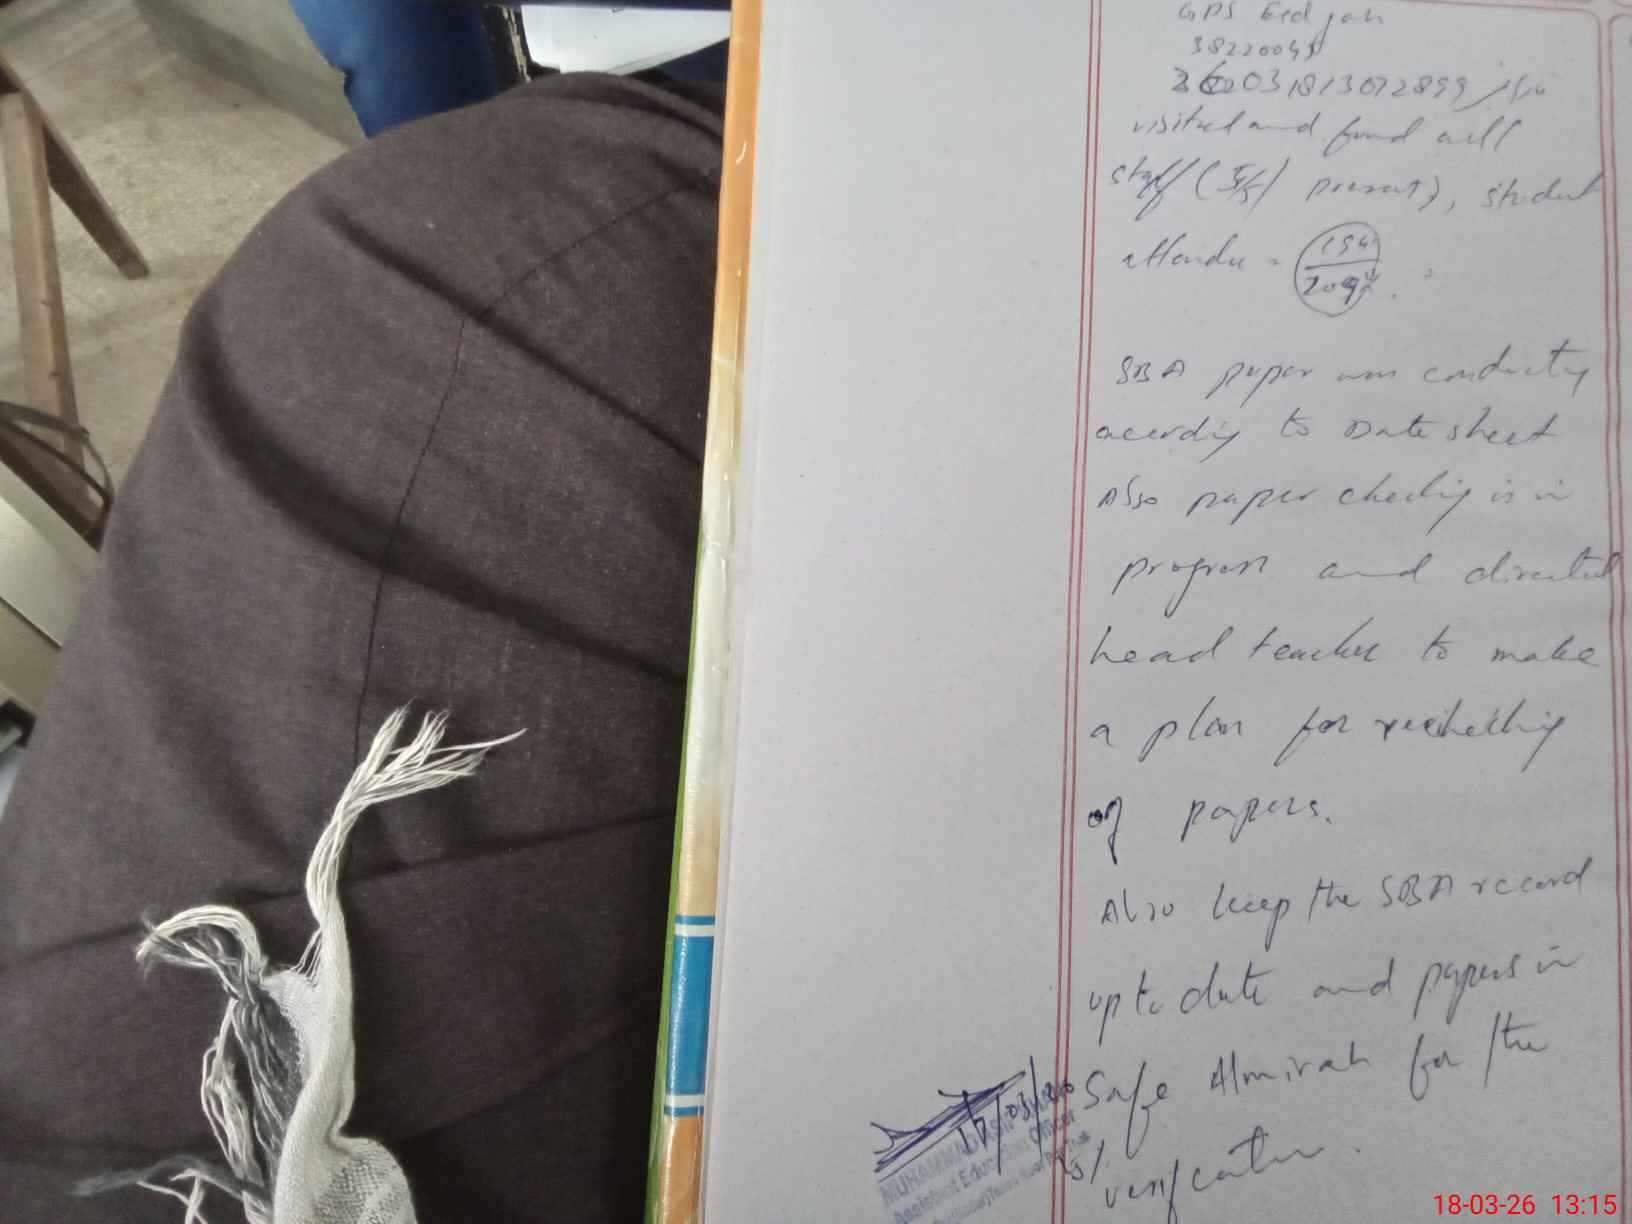 GPS Eid gah
38220045
visited and found all
staff (5/5) present, student
attendce = 154/209.
SBA paper was conducting
acording to Date sheet
Also paper checking is in
progress and directed
head teacher to make
a plan for rechecking
of papers.
Also keep the SBA record
up to date and papers in
Safe Almirah for the
verification.
MUHAMMAD
Assistant Education Officer
18-03-26 13:15